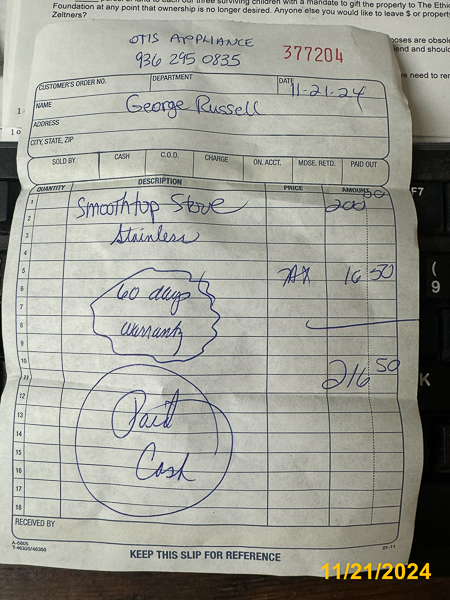 Foundation at any point that ownership is no longer desired. Anyone else you would like to leave $ or property
Zeltners?
OTIS APPLIANCE
936 295 0835
377204
CUSTOMER'S ORDER NO.
DEPARTMENT
DATE
11-21-24
NAME
George Russell
ADDRESS
CITY, STATE, ZIP
SOLD BY
CASH
C.O.D.
CHARGE
ON. ACCT.
MDSE. RETD.
PAID OUT
QUANTITY
DESCRIPTION
PRICE
AMOUNT
1
2
Smoothtop Stove
200 00
3
Stainless
4
5
TAX 16 50
6
60 days
7
8
warranty
9
10
216 50
11
12
13
Paid
14
15
Cash
16
17
18
RECEIVED BY
A-5805
T-46320/46350
01-11
KEEP THIS SLIP FOR REFERENCE
F7
(
9
K
11/21/2024